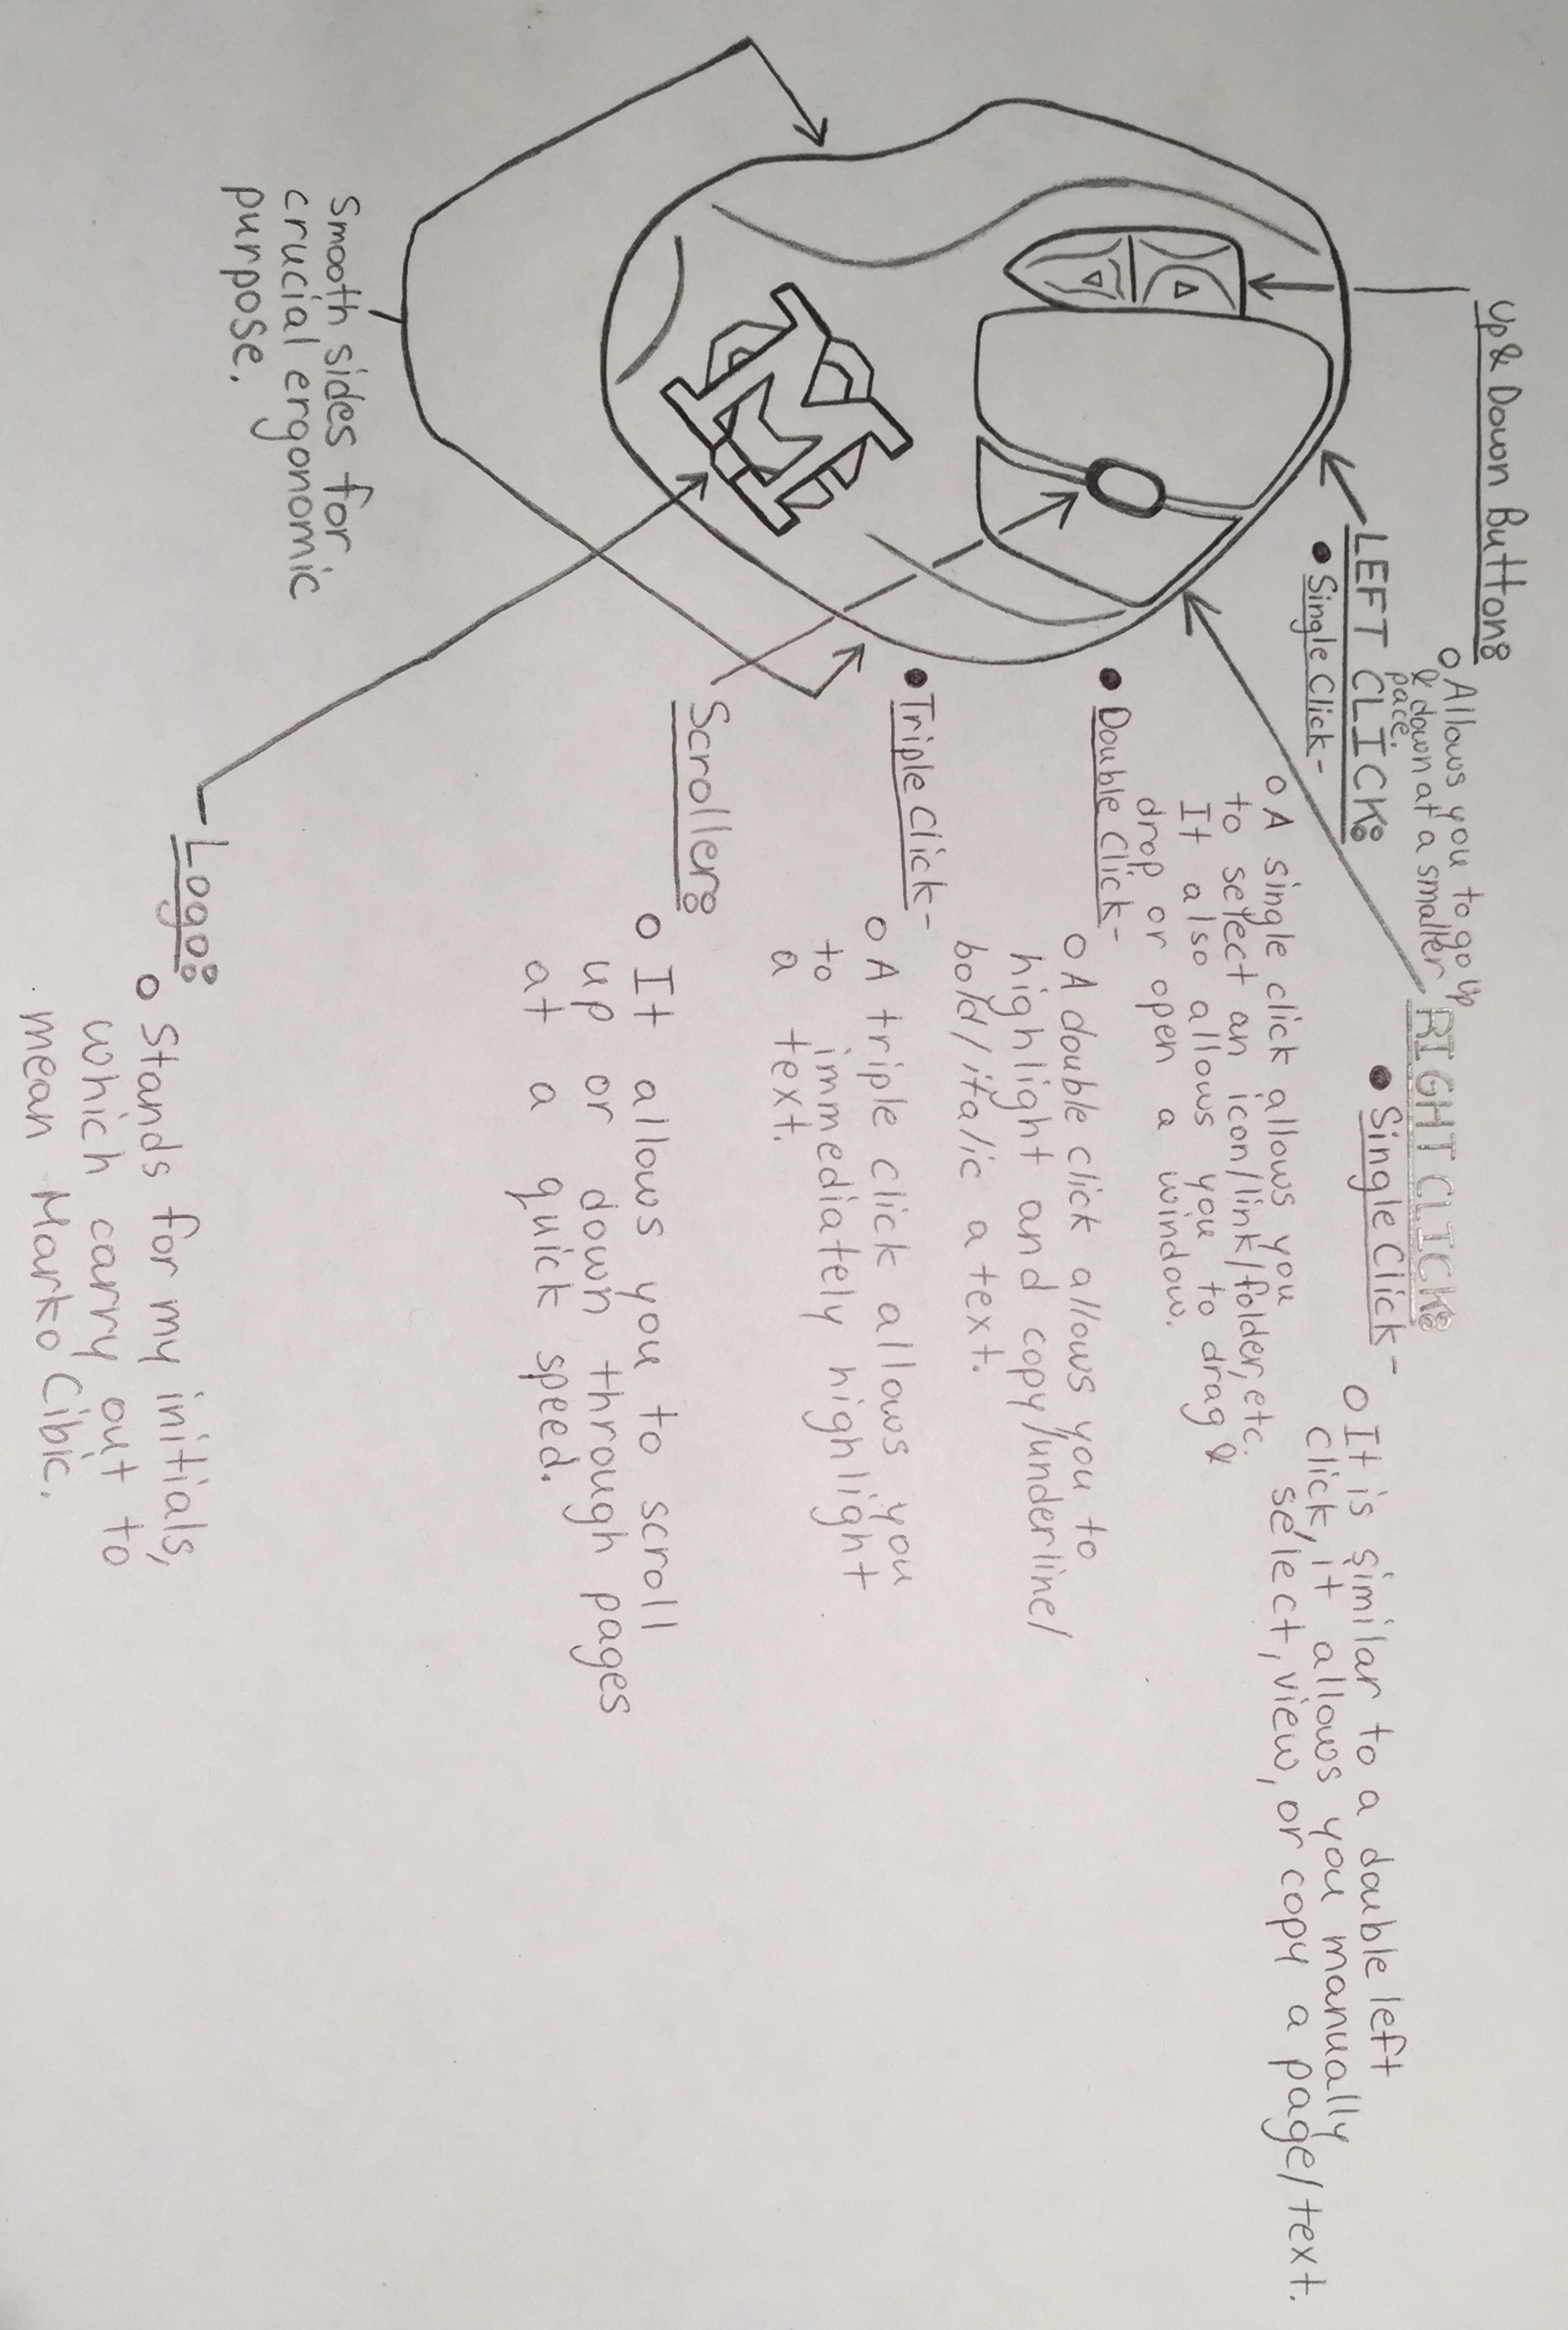 Up & Down Button:
o Allows you to go up
& down at a smaller
pace.
LEFT CLICK:
• Single Click-
o A single click allows you
to select an icon/link/folder, etc.
It also allows you to drag &
drop or open a window.
• Double Click-
o A double click allows you to
highlight and copy/underline/
bold/italic a text.
• Triple Click-
o A triple click allows you
to immediately highlight
a text.
RIGHT CLICK:
• Single Click-
o It is similar to a double left
click, it allows you manually
select, view, or copy a page/text.
Scroller:
o It allows you to scroll
up or down through pages
at a quick speed.
Logo:
o Stands for my initials,
which carry out to
mean Marko Cibic.
Smooth sides for
crucial ergonomic
purpose.